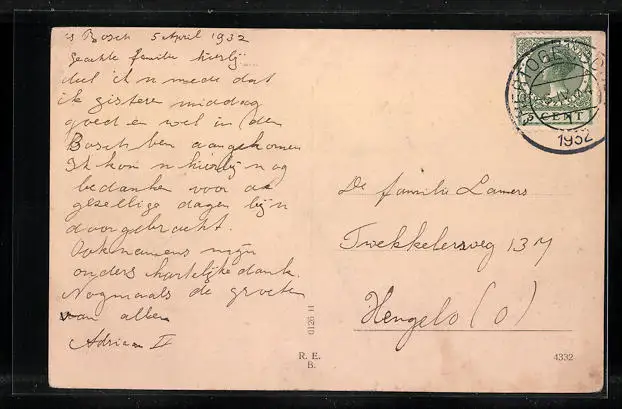 's Bosch 5 April 1932
Geachte familie hierbij
deel ik u mede dat
ik gisteren middag
goed en wel in den
Bosch ben aangekomen
Ik kom u hierbij nog
bedanken voor de
gezellige dagen bij u
doorgebracht.
Ook namens mijn
ouders hartelijke dank.
Nogmaals de groeten
van allen
Adriaan
De familie Lamers
Twekkelersweg 137
Hengelo (O)
5 CENT
1932
0126 H
R. E.
B.
4332